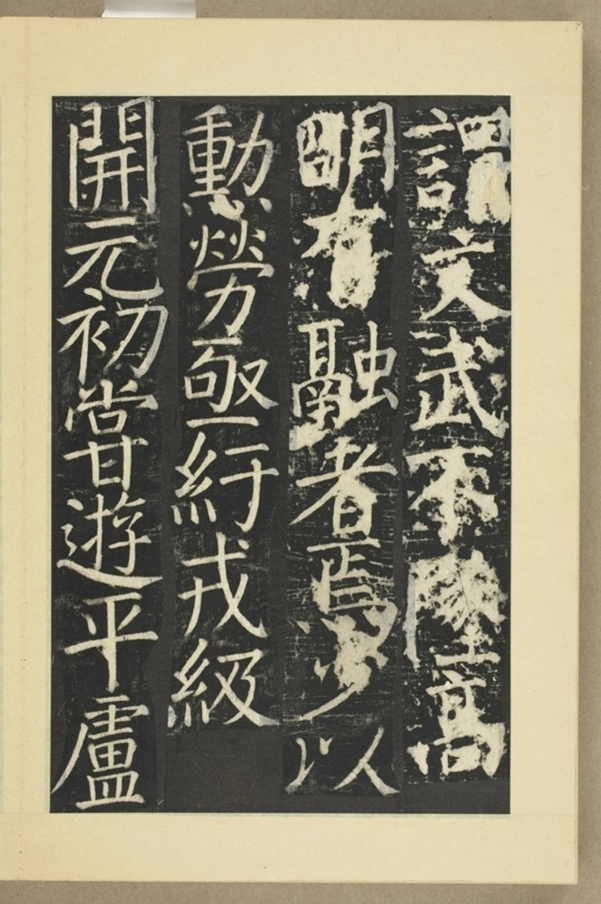 謂文武不墜高
明有融者焉少以
勲勞亟紆戎級
開元初甞遊平盧